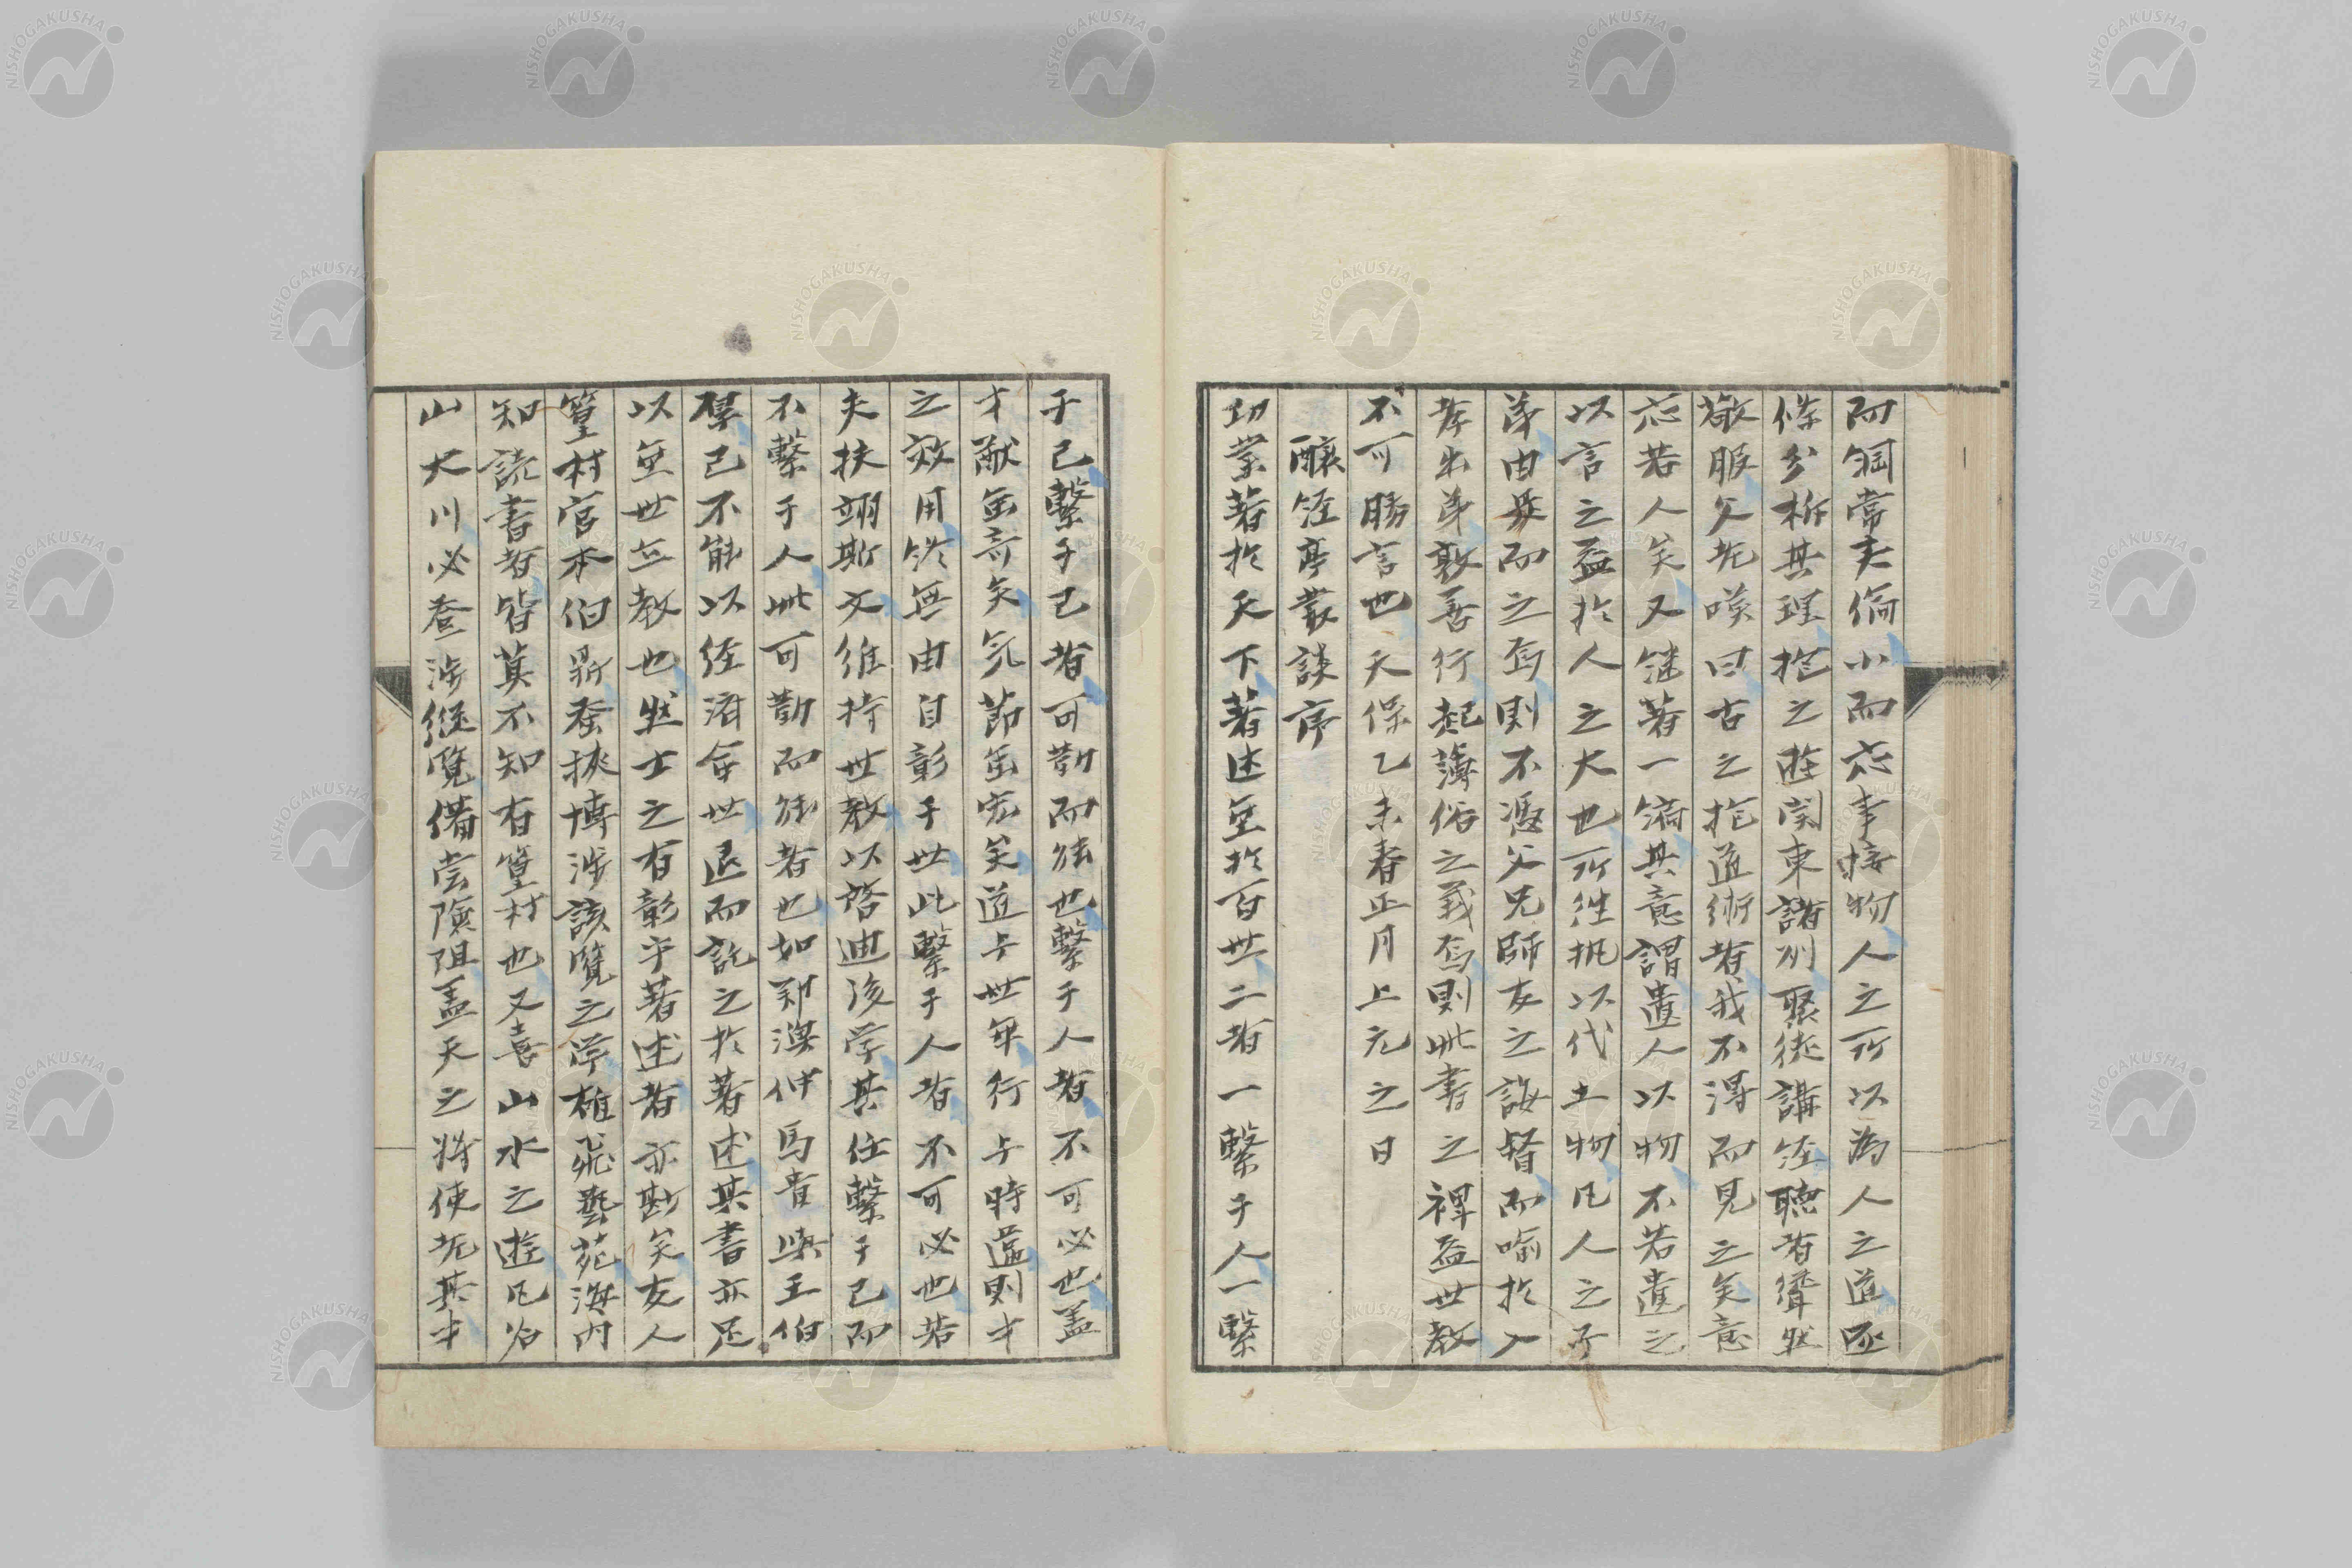 而綱常大倫小而応事接物人之所以為人之道逐
條分析其理抱之遊関東諸州聚徒講経聴者聳然
敬服父兄嘆曰古之抱道術者我不得而見之矣意
応若人矣又継著一編其意謂遺人以物不若遺之
以言之益於人之大也所往執以代土物凡人之子
弟由是而之焉則不憑父兄師友之誨督而喩於入
孝出弟敦善行起薄俗之義焉則此書之裨益世教
不可勝言也天保乙未春正月上元之日
醸経亭叢談序
功業著於天下著述垂於百世二者一繫于人一繫
于己繫于己者可勤而能也繫于人者不可必也盖
才猷雖奇矣気節雖宏矣道与世乖行与時違則才
之效用終無由自彰于世此繫于人者不可必也若
夫扶翊斯文維持世教以啓迪後学其任繫于己而
不繫于人此可勤而能者也如鄭漢仲馬貴與王伯
厚己不能以経済命世退而託之於著述其書亦足
以垂世立教也然士之有彰乎著述者亦尠矣友人
篁村宮本伯鼎奮挾博渉該覧之学雄飛藝苑海内
知読書者皆莫不知有篁村也又喜山水之遊凡名
山大川必登渉縦覧備嘗険阻盖天之将使先其才
NISHOGAKUSHA